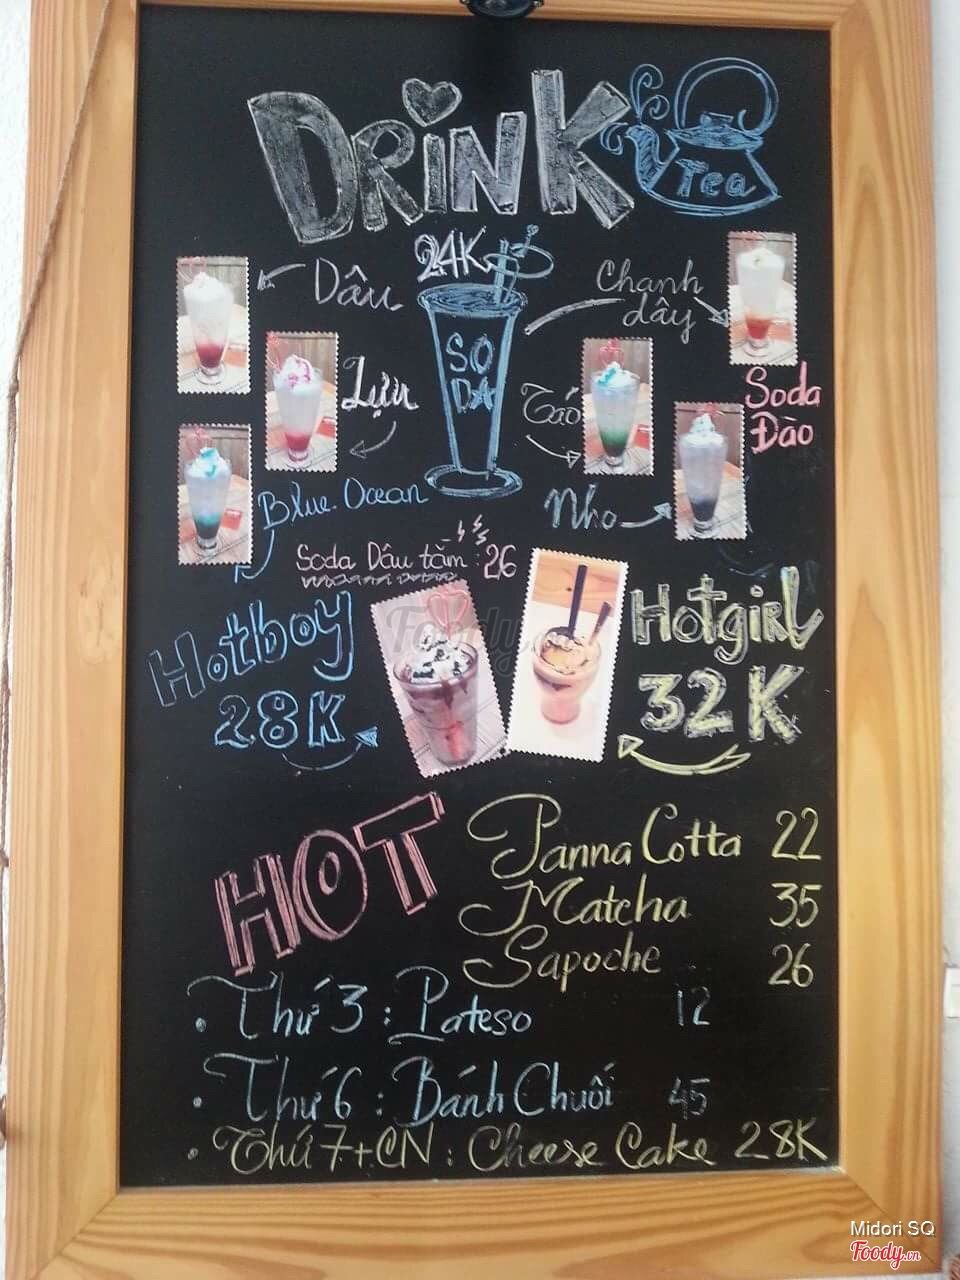 DRiNK
Tea
24K
Dâu
Chanh
dây
SO
DA
Lựu
Táo
Soda
Đào
Blue Ocean
Nho
Soda Dâu tằm : 26
Hotboy
28K
Hotgirl
32K
HOT
Panna Cotta 22
Matcha 35
Sapoche 26
• Thứ 3 : Pateso 12
• Thứ 6 : Bánh Chuối 45
• Thứ 7+CN : Cheese Cake 28K
Foody.vn
Midori SQ
Foody.vn